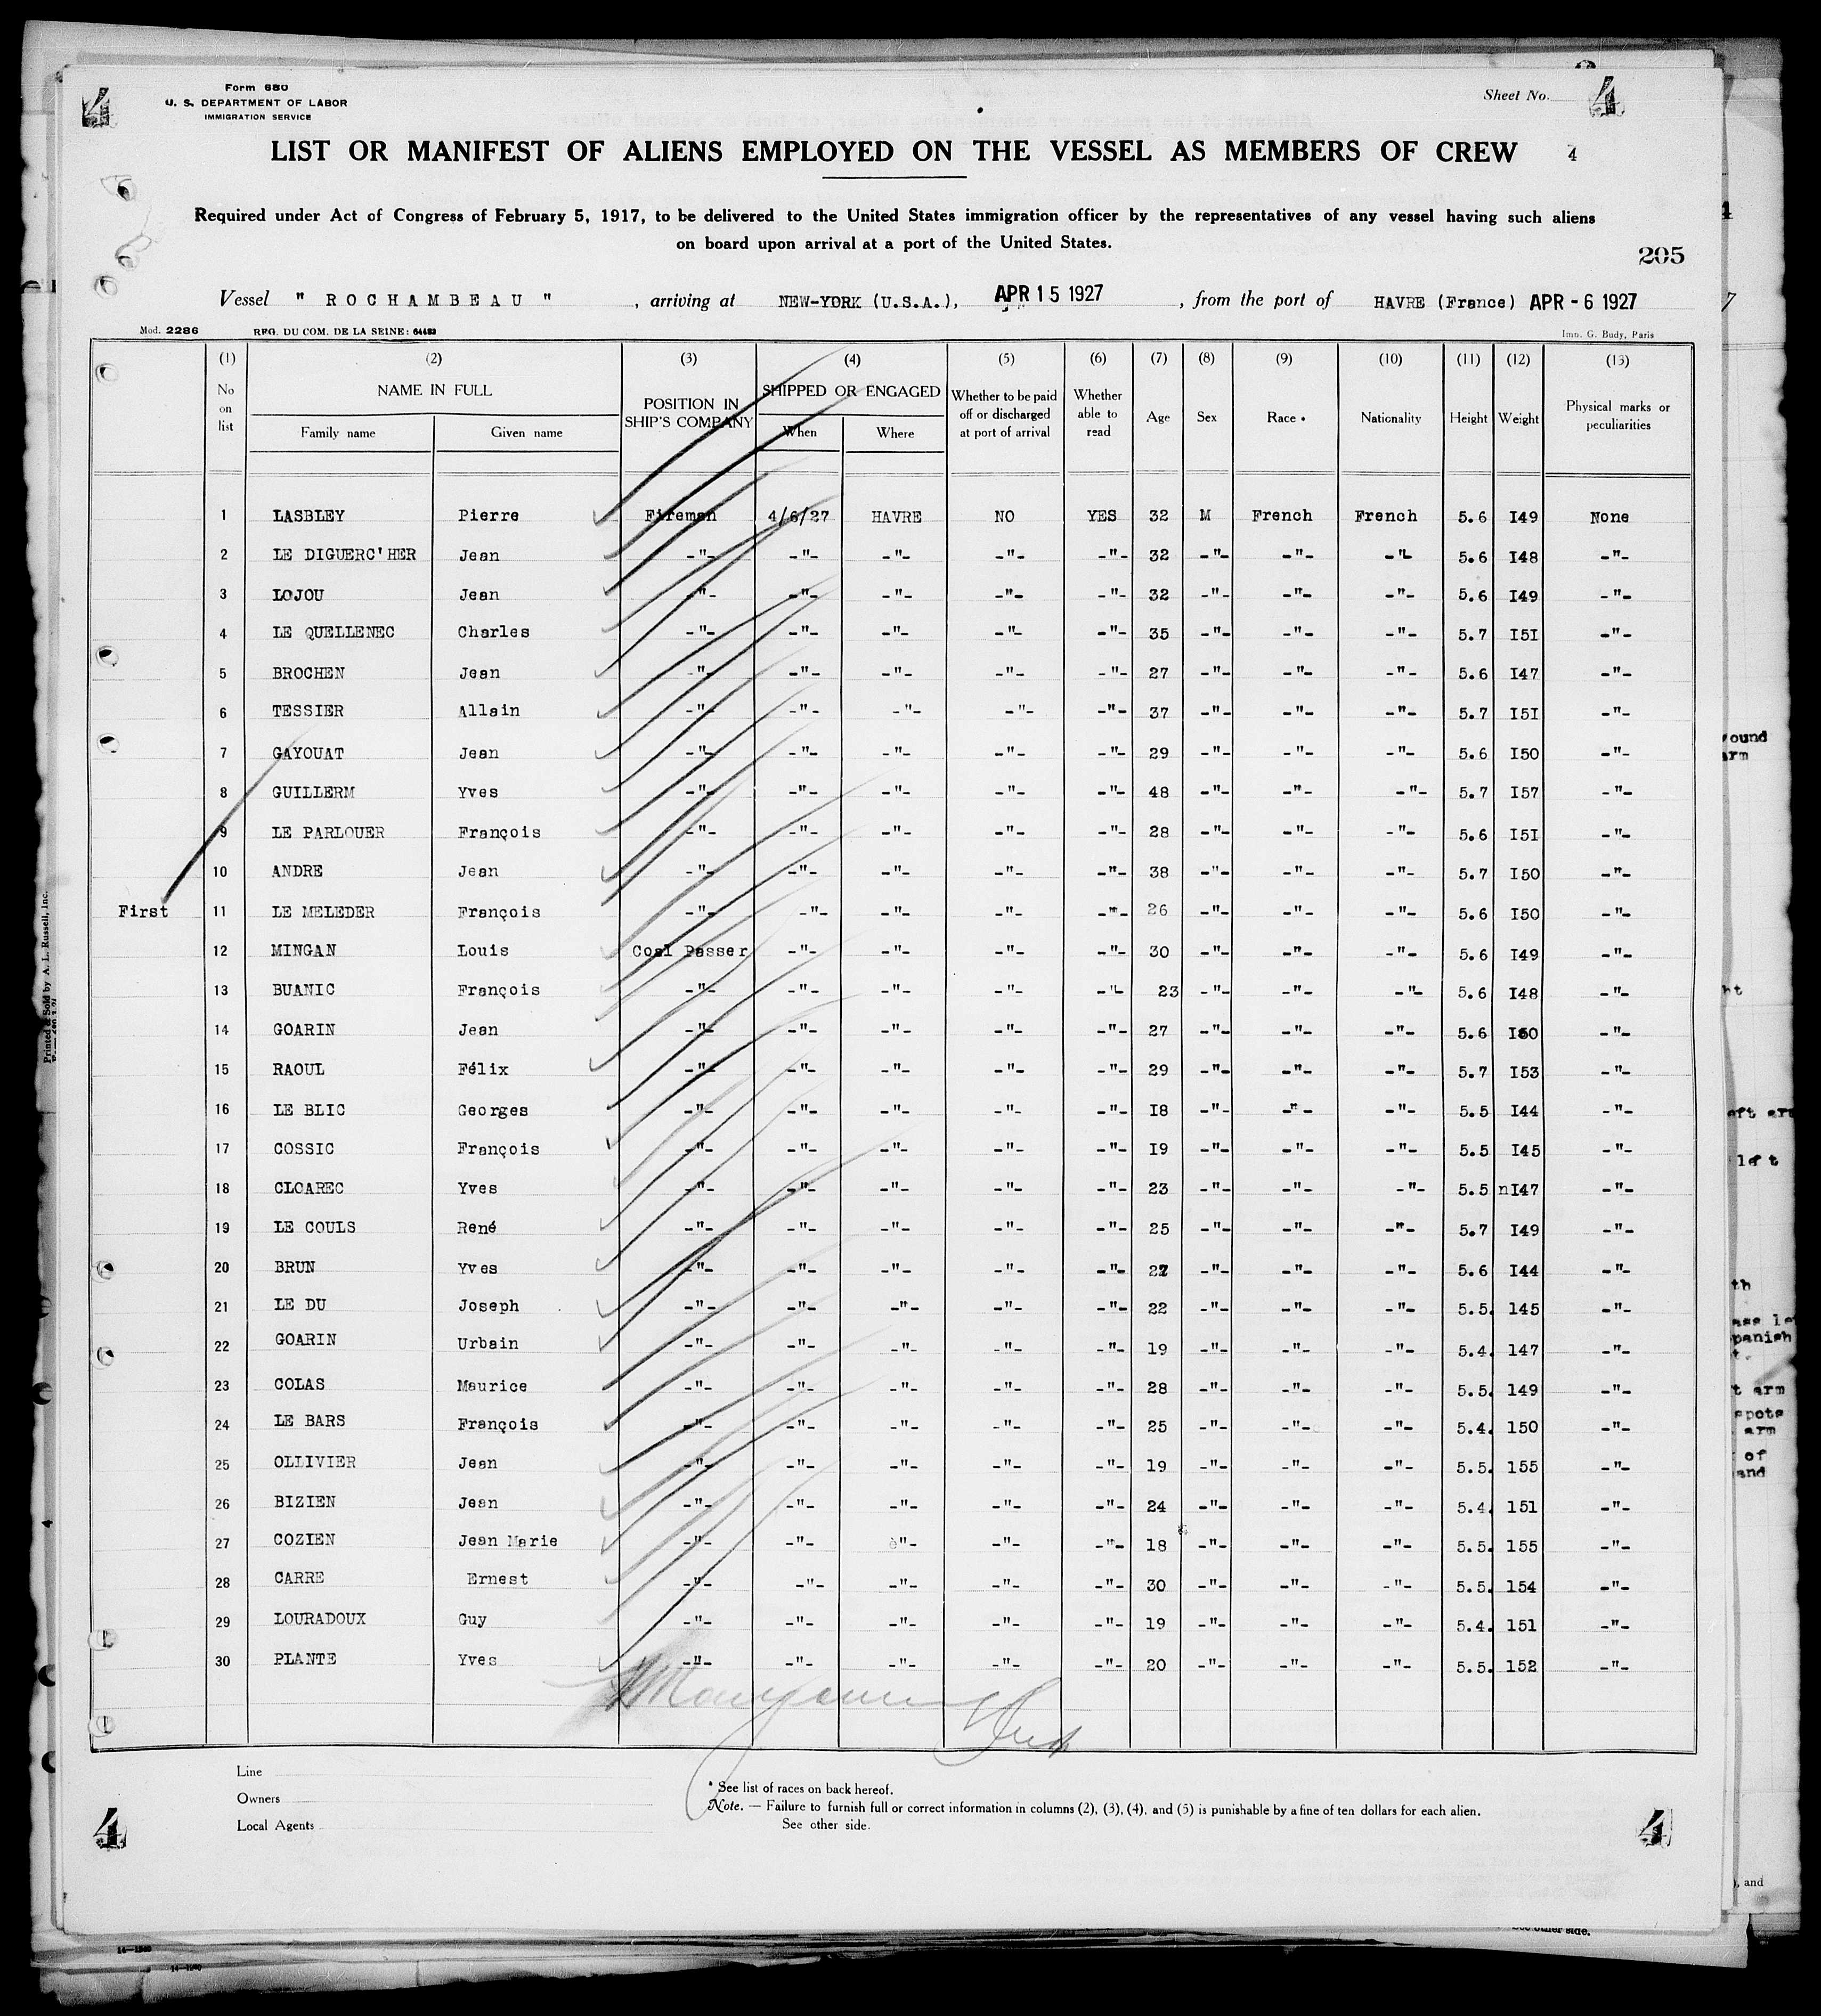 Form 680
U. S. DEPARTMENT OF LABOR
IMMIGRATION SERVICE
4
Sheet No. 4
LIST OR MANIFEST OF ALIENS EMPLOYED ON THE VESSEL AS MEMBERS OF CREW 4
Required under Act of Congress of February 5, 1917, to be delivered to the United States immigration officer by the representatives of any vessel having such aliens
on board upon arrival at a port of the United States.
205
Vessel " ROCHAMBEAU ", arriving at NEW-YORK (U.S.A.), APR 15 1927, from the port of HAVRE (France) APR - 6 1927
Mod. 2286 REG. DU COM. DE LA SEINE: 64483 Imp. G. Budy, Paris
(1) (2) (3) (4) (5) (6) (7) (8) (9) (10) (11) (12) (13)
No on list NAME IN FULL Family name Given name POSITION IN SHIP'S COMPANY SHIPPED OR ENGAGED When Where Whether to be paid off or discharged at port of arrival Whether able to read Age Sex Race * Nationality Height Weight Physical marks or peculiarities
1 LASBLEY Pierre Fireman 4/6/27 HAVRE NO YES 32 M French French 5.6 I49 None
2 LE DIGUERC'HER Jean -"- -"- -"- -"- -"- 32 -"- -"- -"- 5.6 I48 -"-
3 LOJOU Jean -"- -"- -"- -"- -"- 32 -"- -"- -"- 5.6 I49 -"-
4 LE QUELLENEC Charles -"- -"- -"- -"- -"- 35 -"- -"- -"- 5.7 I5I -"-
5 BROCHEN Jean -"- -"- -"- -"- -"- 27 -"- -"- -"- 5.6 I47 -"-
6 TESSIER Allain -"- -"- -"- -"- -"- 37 -"- -"- -"- 5.7 I5I -"-
7 GAYOUAT Jean -"- -"- -"- -"- -"- 29 -"- -"- -"- 5.6 I50 -"-
8 GUILLERM Yves -"- -"- -"- -"- -"- 48 -"- -"- -"- 5.7 I57 -"-
9 LE PARLOUER François -"- -"- -"- -"- -"- 28 -"- -"- -"- 5.6 I5I -"-
10 ANDRE Jean -"- -"- -"- -"- -"- 38 -"- -"- -"- 5.7 I50 -"-
First 11 LE MELEDER François -"- -"- -"- -"- -"- 26 -"- -"- -"- 5.6 I50 -"-
12 MINGAN Louis Coal Passer -"- -"- -"- -"- 30 -"- -"- -"- 5.6 I49 -"-
13 BUANIC François -"- -"- -"- -"- -"- 23 -"- -"- -"- 5.6 I48 -"-
14 GOARIN Jean -"- -"- -"- -"- -"- 27 -"- -"- -"- 5.6 -"-
15 RAOUL Félix -"- -"- -"- -"- -"- 29 -"- -"- -"- 5.7 I53 -"-
16 LE BLIC Georges -"- -"- -"- -"- -"- I8 -"- -"- -"- 5.5 I44 -"-
17 COSSIC François -"- -"- -"- -"- -"- I9 -"- -"- -"- 5.5 I45 -"-
18 CLOAREC Yves -"- -"- -"- -"- -"- 23 -"- -"- -"- 5.5 nI47 -"-
19 LE COULS René -"- -"- -"- -"- -"- 25 -"- -"- -"- 5.7 I49 -"-
20 BRUN Yves -"- -"- -"- -"- -"- -"- -"- -"- 5.6 I44 -"-
21 LE DU Joseph -"- -"- -"- -"- -"- 22 -"- -"- -"- 5.5. 145 -"-
22 GOARIN Urbain -"- -"- -"- -"- -"- 19 -"- -"- -"- 5.4. 147 -"-
23 COLAS Maurice -"- -"- -"- -"- -"- 28 -"- -"- -"- 5.5. 149 -"-
24 LE BARS François -"- -"- -"- -"- -"- 25 -"- -"- -"- 5.4. 150 -"-
25 OLLIVIER Jean -"- -"- -"- -"- -"- 19 -"- -"- -"- 5.5. 155 -"-
26 BIZIEN Jean -"- -"- -"- -"- -"- 24 -"- -"- -"- 5.4. 151 -"-
27 COZIEN Jean Marie -"- -"- è"- -"- -"- 18 -"- -"- -"- 5.5. 155 -"-
28 CARRE Ernest -"- -"- -"- -"- -"- 30 -"- -"- -"- 5.5. 154 -"-
29 LOURADOUX Guy -"- -"- -"- -"- -"- 19 -"- -"- -"- 5.4. 151 -"-
30 PLANTE Yves -"- -"- -"- -"- -"- 20 -"- -"- -"- 5.5. 152 -"-
Line
Owners
Local Agents
* See list of races on back hereof.
Note. — Failure to furnish full or correct information in columns (2), (3), (4), and (5) is punishable by a fine of ten dollars for each alien.
See other side.
4
4
Printed & Sold by A. L. Russell, Inc.
ound
arm
left
th
panish
t arm
spots
arm
of
and
), and
See other side.